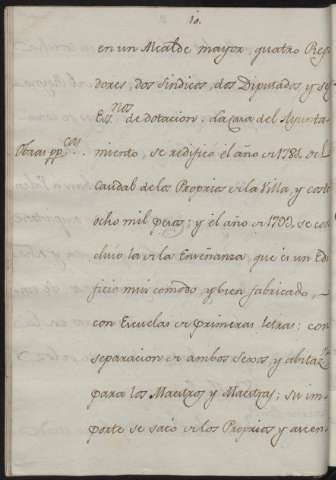 10.
en un Alcalde mayor, quatro Regi
dores, dos Sindicos, dos Diputados, y se
Esnos de dotacion. La casa del Ayunta-
Obras ppcas. miento, se redificó el año de 1784 del
Caudal de los Propios de la Villa, y costó
ocho mil pesos; y el año de 1790, se con
cluió la de la Enseñanza, que es un Edi
ficio mui comodo, y bien fabricado,
con Escuelas de primeras letras; con
separacion de ambos sexos, y abitaz
para los Maestros y Maestras; su im-
porte se sacó de los Propios, y ascen